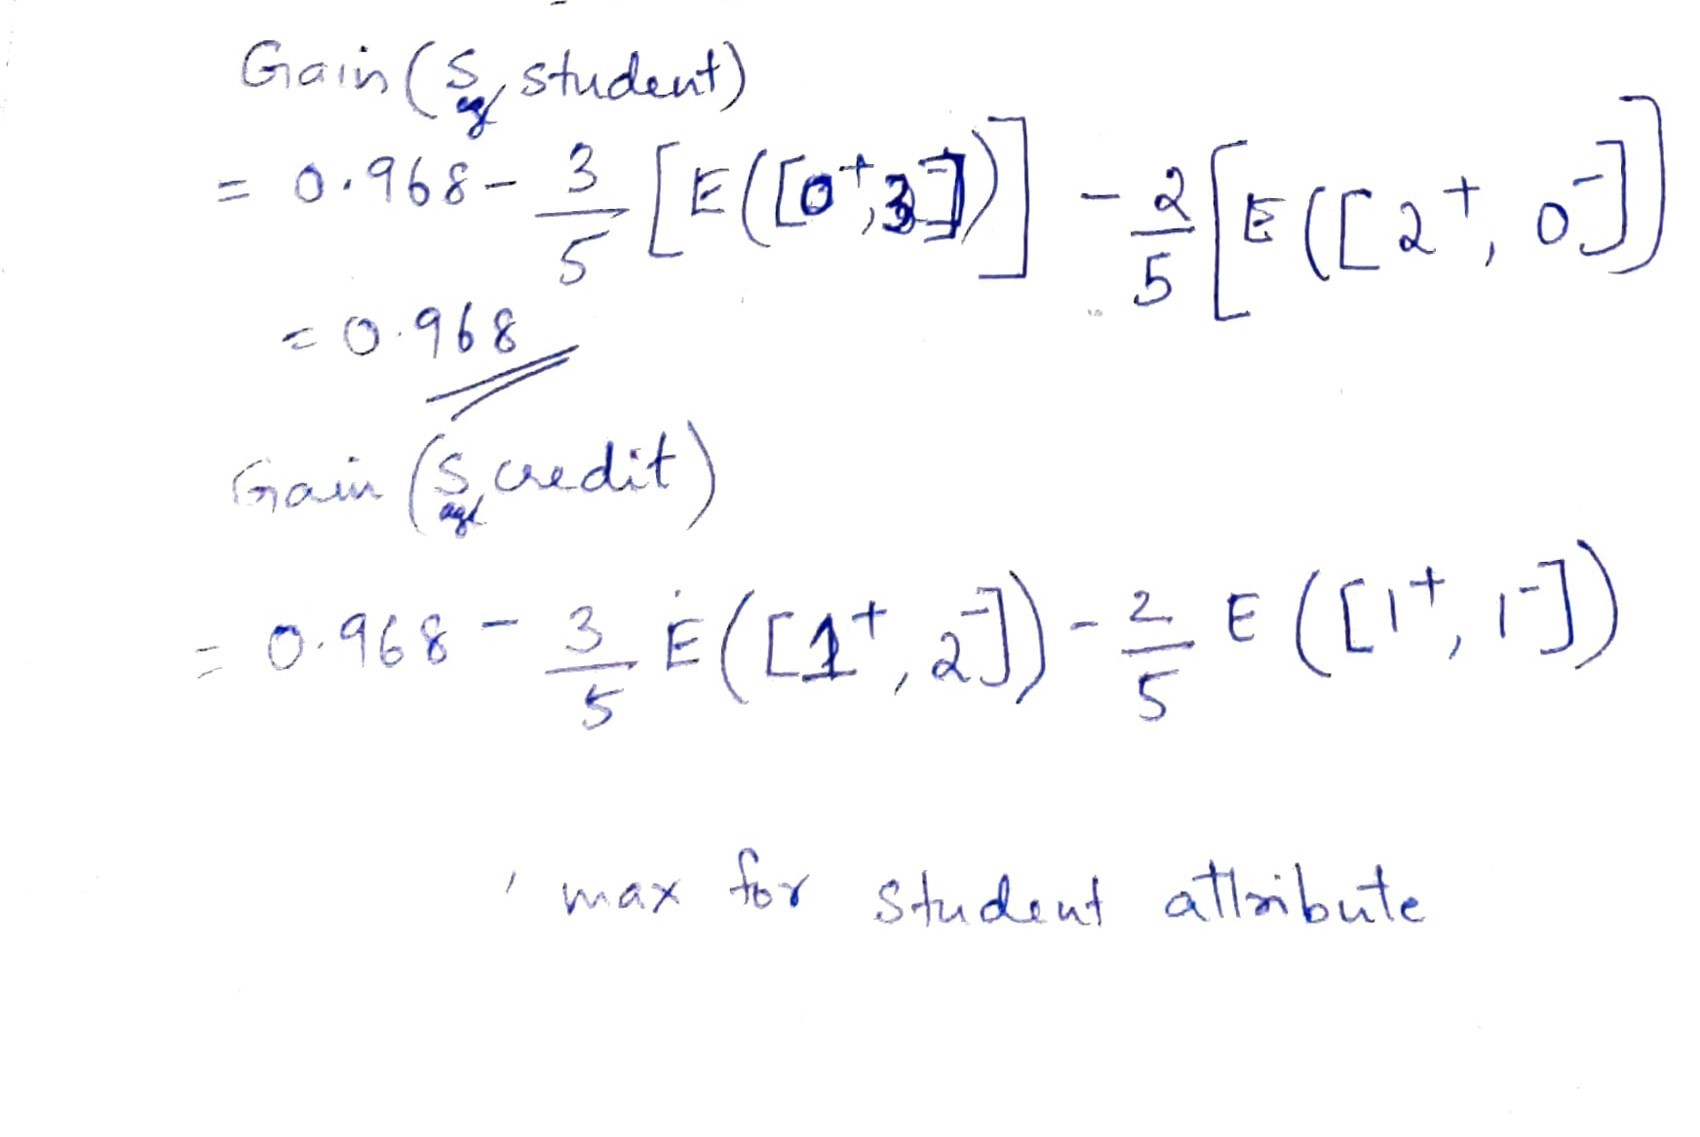 Gain (S_age, student)
= 0.968 - 3/5 [E([0⁺, 3⁻])] - 2/5 [E([2⁺, 0⁻])]
= 0.968
Gain (S_age, credit)
= 0.968 - 3/5 E([1⁺, 2⁻]) - 2/5 E([1⁺, 1⁻])
max for student attribute